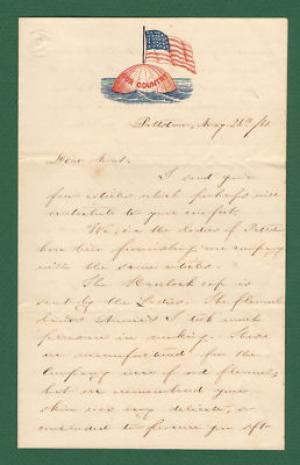 OUR COUNTRY
Pittstown, May 26th /61.
Dear Aunt,
I send you a
few articles which perhaps will
contribute to your comfort.
We, i.e. the ladies of Pittst
have been furnishing one company
with the same articles.
The Havelock cap is
sent by the Ladies. The flannel
I took much
pleasure in making. Those
we manufactured for the
Company were of red flannel,
but we remembered your
skin was very delicate, so
concluded to